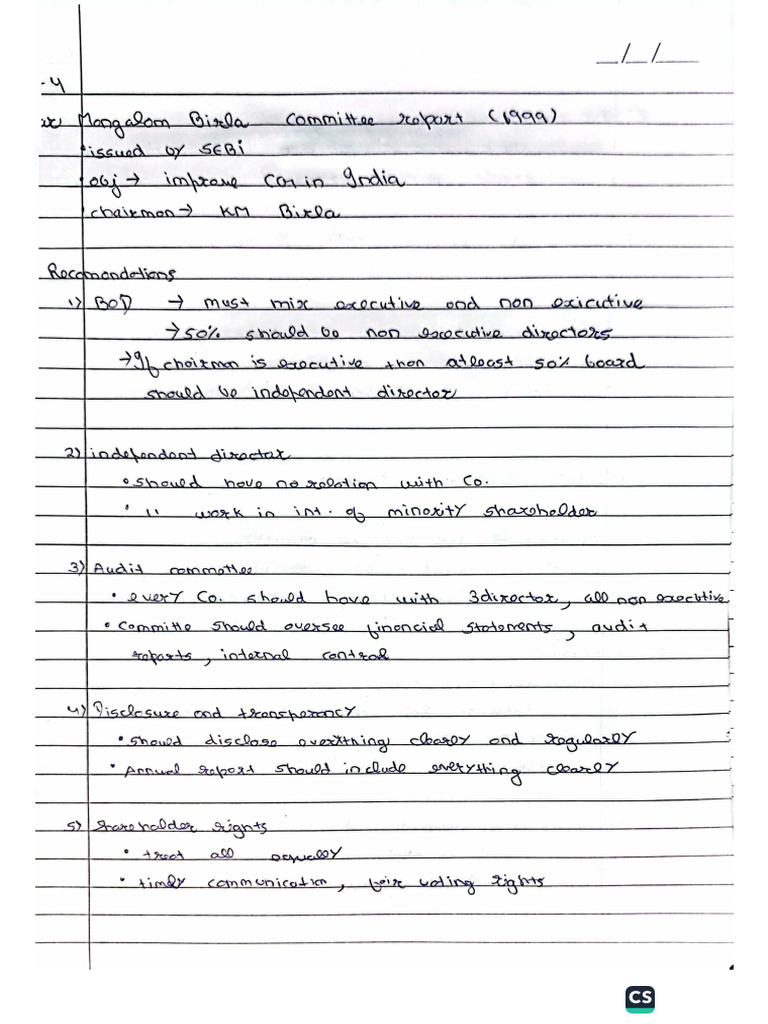 _/_/_
-4
ar Mangalam Birla committee report (1999)
issued by SEBi
obj → improve CG in India
chairman → KM Birla
Recomandations
1) BOD → must mix executive and non exicutive
→ 50% should be non executive directors
→ If chairman is executive then atleast 50% board
should be independent director
2) independent director
• should have no relation with Co.
• '' work in int. of minority shareholder
3) Audit committee
• every Co. should have with 3 director, all non executive
• Committe should oversee financial statements, audit
reports, internal control
4) Disclosure and transparency
• should disclose everything clearly and regularly
• Annual report should include everything clearly
5) shareholder rights
• treat all equally
• timly communication, fair voting rights
CS